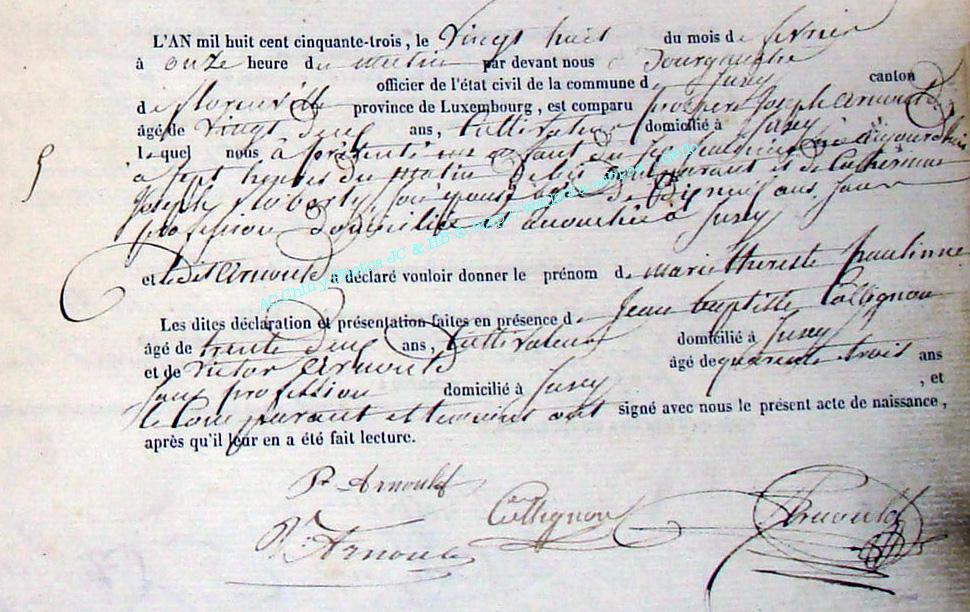 L'AN mil huit cent cinquante-trois, le Vingt huit du mois de fevrier
à onze heure du matin par devant nous
officier de l'état civil de la commune de Jusey canton
de florenville province de Luxembourg, est comparu prosper Joseph Arnould
âgé de Vingt deux ans, Cultivateur domicilié à Jusey
5 lequel nous à présenté un enfant du sexe né aujourd'hui
à sept heures du Matin de lui comparant et de Catherine
Joseph son épouse agée de ans, sans
profession domiciliée et accouchée à Jusey
et ledit Arnould a déclaré vouloir donner le prénom de marie therese paulinne
Les dites déclaration et présentation faites en présence de Jean baptiste Collignon
âgé de trente deux ans, Cultivateur domicilié à Jusey
et de Victor Arnould âgé de quarante trois ans
sans profession domicilié à Jusey , et
le Comparant et temoins ont signé avec nous le présent acte de naissance,
après qu'il leur en a été fait lecture.
Pr Arnould
Collignon
Vr Arnould